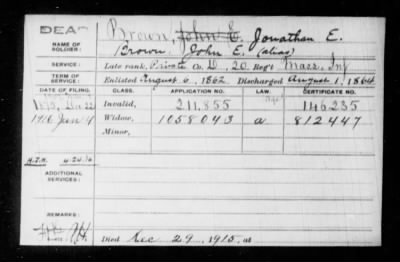 DEA
NAME OF SOLDIER:
Brown, John E. Jonathan E.
Brown, John E. (alias)
SERVICE:
Late rank, Private Co. D, 20 Reg't Mass. Inf
TERM OF SERVICE:
Enlisted August 6, 1862 Discharged August 1, 1864
DATE OF FILING. CLASS. APPLICATION NO. LAW. CERTIFICATE NO.
Dec 22 Invalid, 211,855 146235
1916 Jan 4 Widow, 1058043 a 812447
Minor,
4.24.16
ADDITIONAL SERVICES:
REMARKS:
Died Dec 29, 1915, at